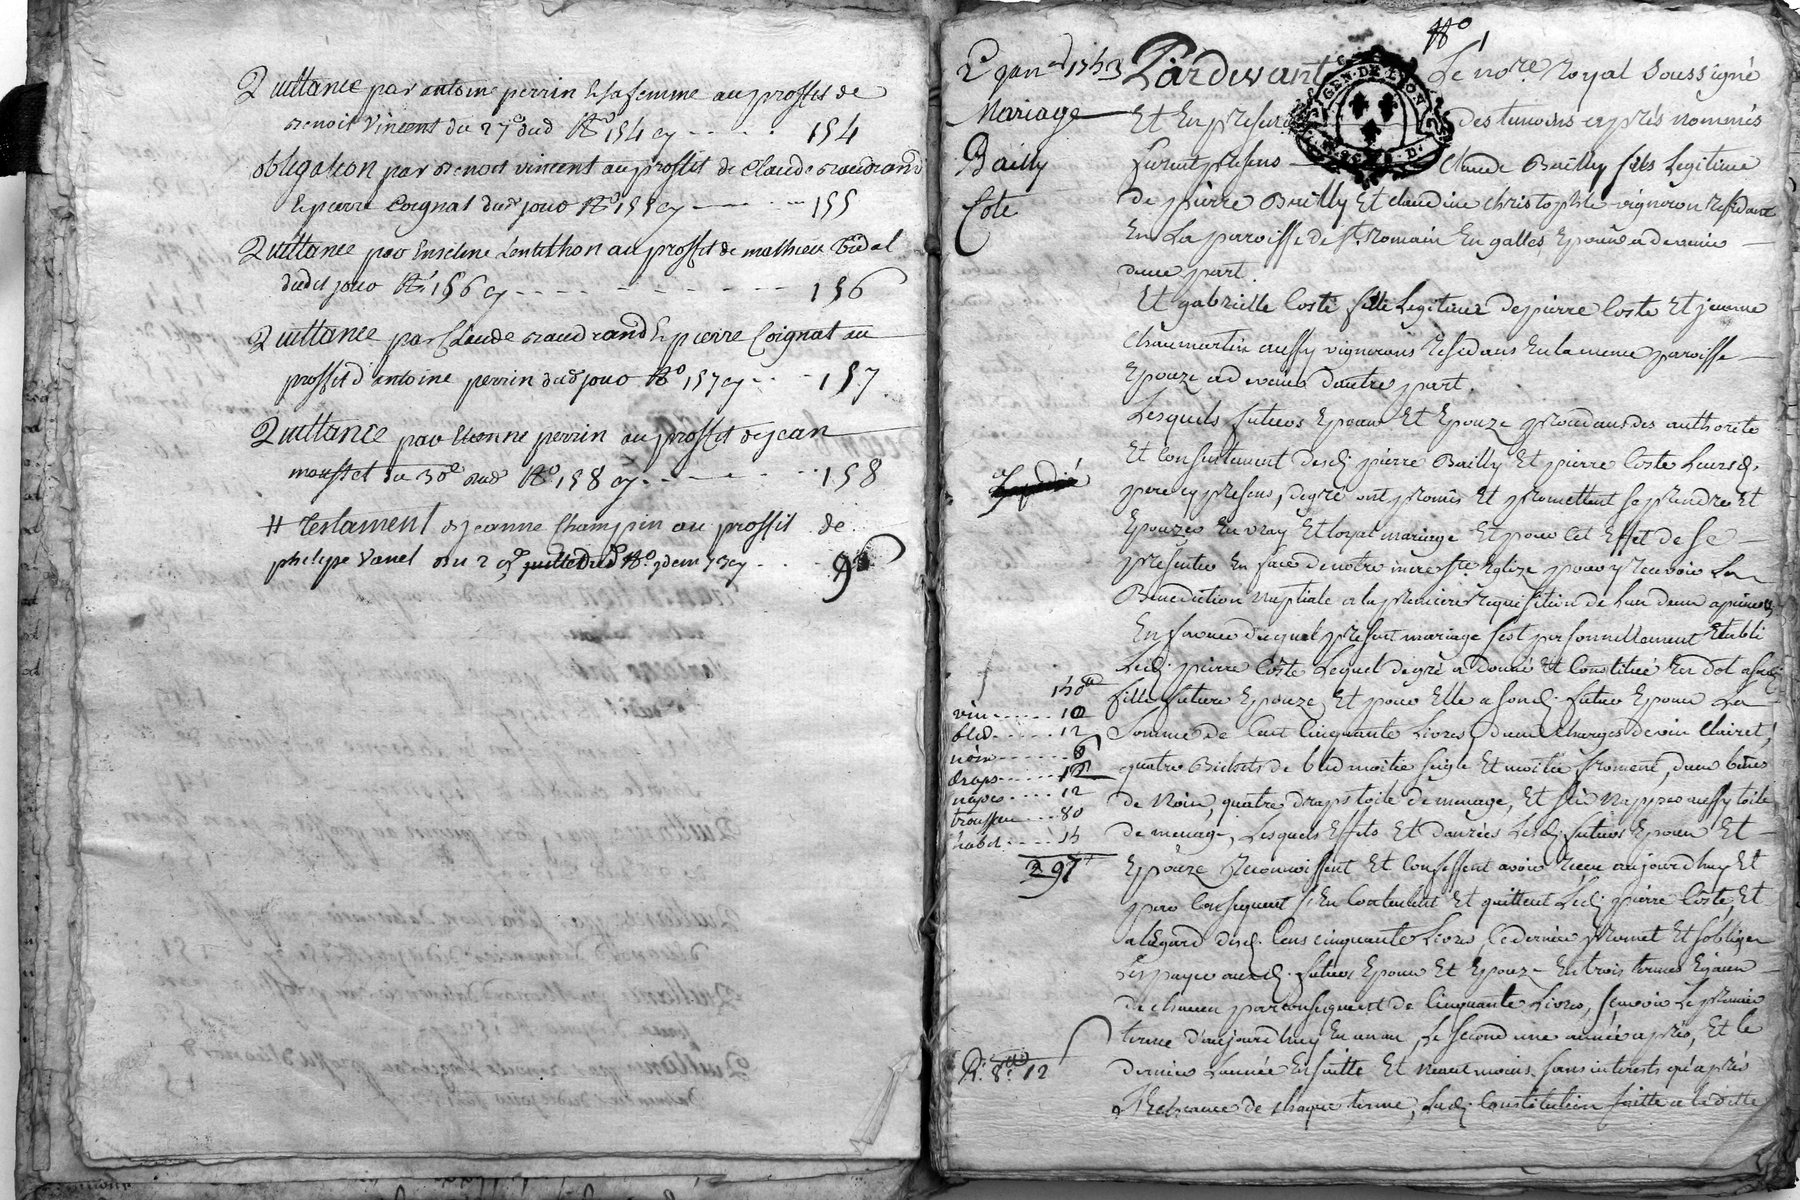 Quittance par antoine perrin & sa femme au proffit de
Benoit Vincent du 27e dud No 154 cy 154
obligation par Benoit vincent au proffit de Claude Baudrand
& pierre Coignat dud jour No 155 cy 155
Quittance par Enselme Lentithon au proffit de mathieu Vidal
dudit jour No 156 cy 156
Quittance par Claude Baudrand & pierre Coignat au
proffit d'antoine perrin dud jour No 157 cy 157
Quittance par Etienne perrin au proffit de jean
moussel du 30e dud No 158 cy 158
# Testament de jeanne Champin au proffit de
philipe Vanel du 29e juillet dud No 9 cy 9
No 1
2e janer 1753
Mariage
Bailly
Cote
Pardevant Le nore Royal Soussigné
GEN. DE LYON
Et En presence des temoins cy prés nommés
furent presens Claude Bailly fils Legitime
de pierre Bailly Et claudine christophle vigneron residant
En La paroisse de St Romain En galles, Epoux a devenir
dune part.
Et gabrielle Coste fille Legitime de pierre Coste Et jeanne
Chaumartin aussy vignerons residans En la meme paroisse
Epouze a devenir d'autre part.
Lesquels futurs Epoux Et Epouze procedans des authorité
Et Consentement desd. pierre Bailly Et pierre Coste Leursd.
Expedié
pere cy presens, de gré ont promis Et promettent se prendre Et
Epouzer En vray Et loyal mariage Et pour Cet Effet de se
presenter En face de notre mere Ste Eglise pour y recevoir La
Benediction Nuptiale a la premiere requisition de lun deux a peine
En faveur duquel present mariage s'est personnellement Etabli
Led. pierre Coste Lequel de gré a donné Et Constitué En dot a sad.
fille future Epouze, Et pour Elle a sond. futur Epoux La
Somme de Cent Cinquante Livres, deux charges de vin Clairet,
quatre Bichets de bled moitie seigle Et moitie froment, dune benne
de Noix, quatre draps toile de menage, Et six Nappes aussy toile
de menage, Lesquels Effets Et danrées Lesd. futurs Epoux Et
Epouze Reconnoissent Et Confessent avoir receu aujourdhuy Et
par Consequent s'En Contentent Et quittent Led. pierre Coste, Et
a legard desd. Cent cinquante Livres, Ce dernier promet Et s'oblige
Les payer auxd. futurs Epoux Et Epouze En trois termes Egaux
de chacun par consequent de Cinquante Livres, sçavoir Le premier
terme d'aujourdhuy En un an, Le Second une année aprés, Et le
dernier L'année Ensuitte Et Neantmoins sans interests qu'aprés
L'Echeance de chaque terme, Lad. Constitution faitte a laditte
150tt
vin 10
bled 12
noix 6
draps 12
napes 12
trousseau 80
habit 15
297tt